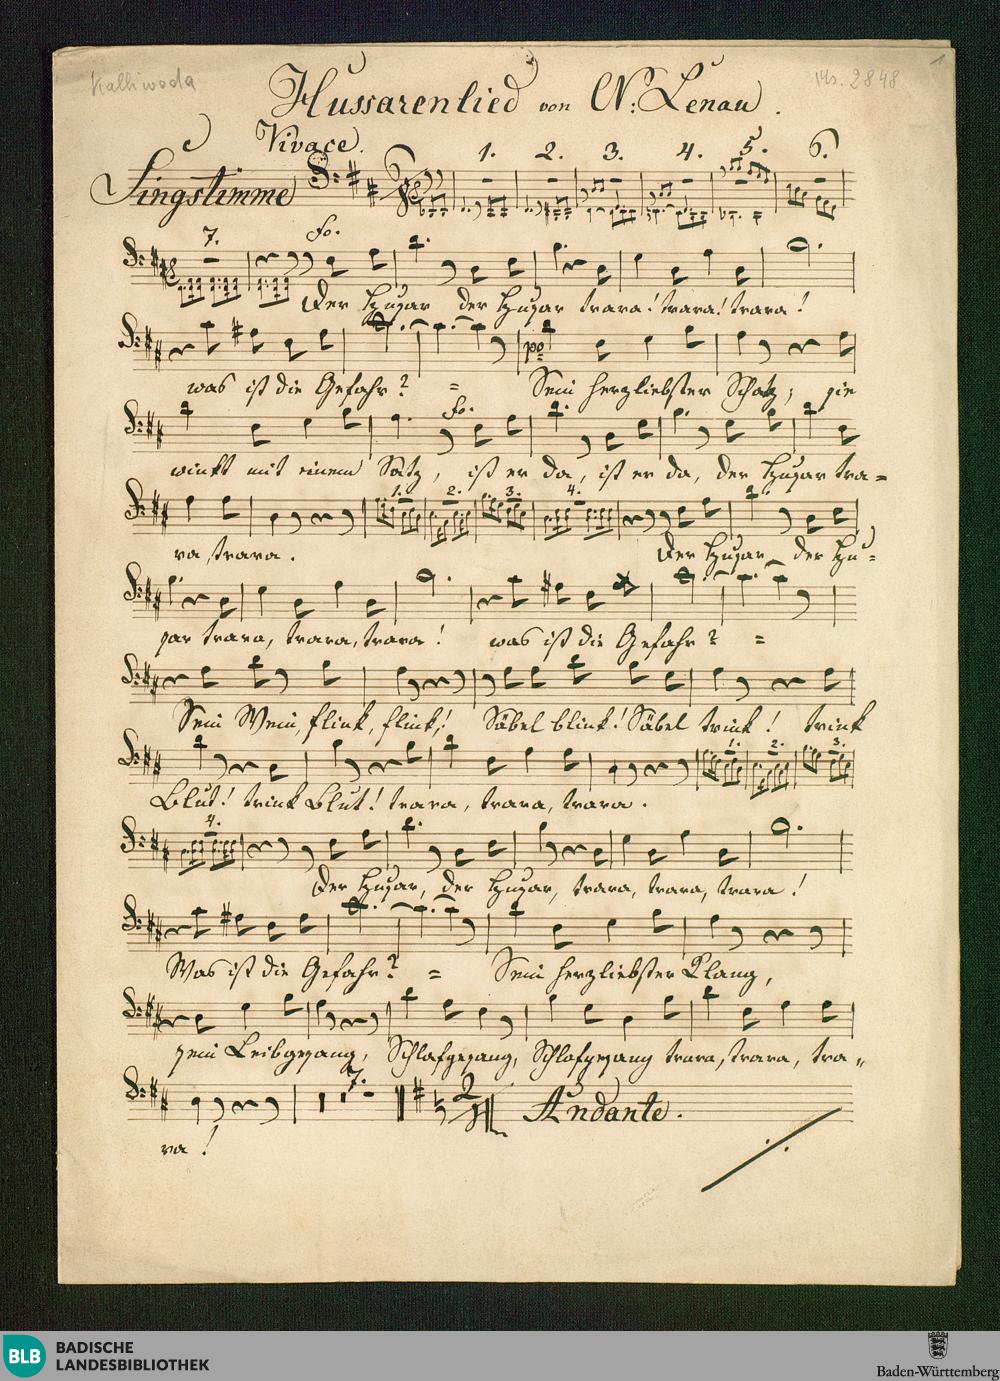 Kalliwoda
Hussarenlied von N: Lenau.
Ms. 2848
1
Vivace.
Singstimme
1. 2. 3. 4. 5. 6.
7. Fo.
Der Husar der Husar trara! trara! trara!
po
was ist die Gefahr? = Sein herzliebster Schatz; sie
Fo.
winkt mit einem Satz, ist er da, ist er da, der Husar tra=
1. 2. 3. 4.
ra, trara. Der Husar der Hu=
sar trara, trara, trara! was ist die Gefahr? =
Sein Wein, flink, flink! Säbel blink! Säbel trink! trink
1. 2. 3.
Blut! trink Blut! trara, trara, trara.
4.
Der Husar, der Husar, trara, trara, trara!
Was ist die Gefahr? = Sein herzliebster Klang,
sein Leibgesang, Schlafgesang, Schlafgesang trara, trara, tra=
7. 2
Andante.
ra!
BLB BADISCHE
LANDESBIBLIOTHEK
Baden-Württemberg